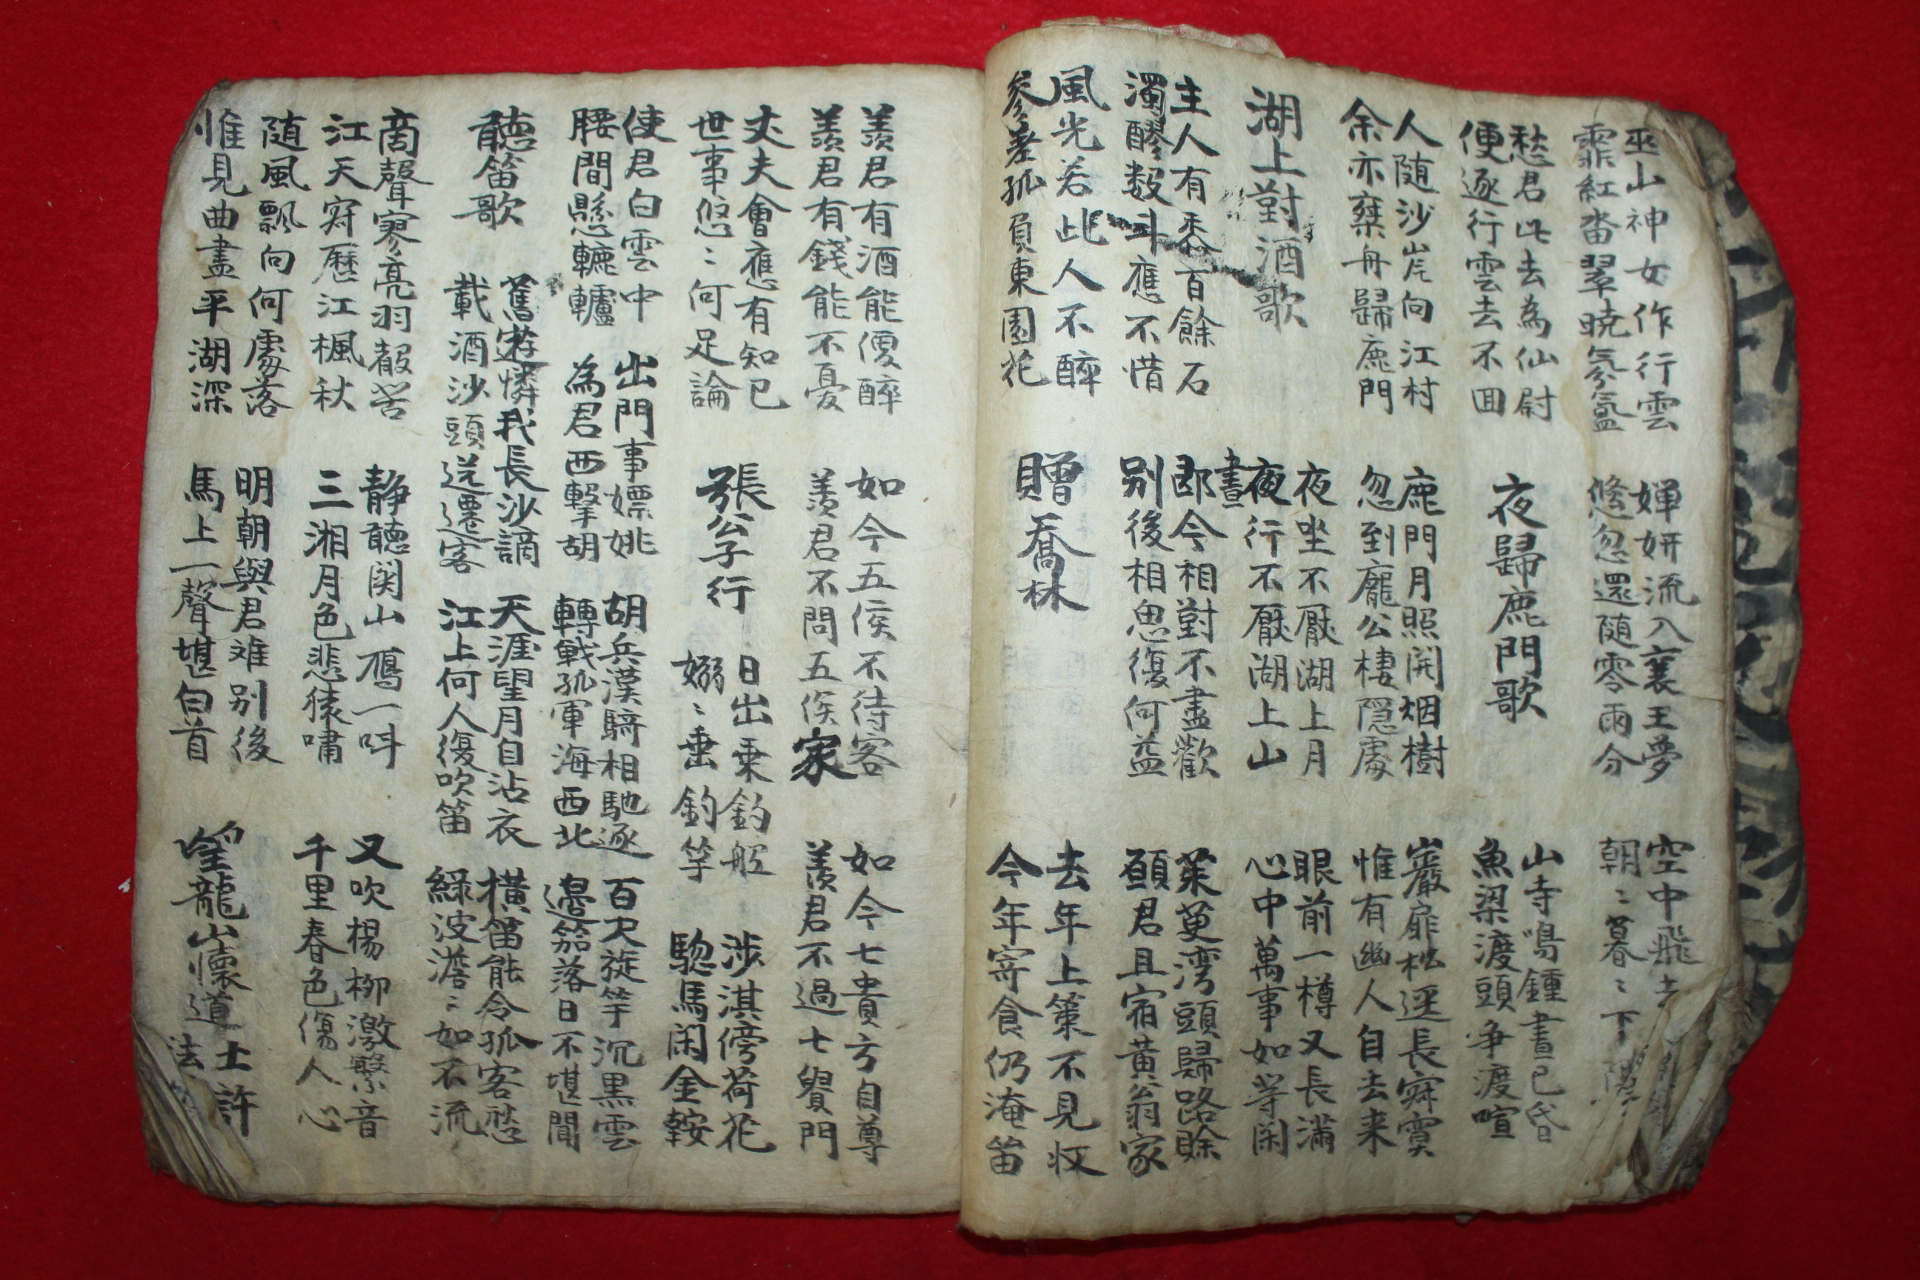 巫山神女作行雲
霏紅沓翠曉氛氳
嬋妍流入襄王夢
倏忽還随零雨分
空中飛去
朝〻暮〻下陽
愁君此去為仙尉
便逐行雲去不回
夜歸鹿門歌
山寺鳴鍾晝已昏
魚梁渡頭爭渡喧
人随沙岸向江村
余亦乘舟歸鹿門
鹿門月照開烟樹
忽到龐公棲隠處
巖扉松逕長寂寞
惟有幽人自去来
湖上對酒歌
夜坐不厭湖上月
晝夜行不厭湖上山
眼前一樽又長滿
心中萬事如等閑
主人有黍百餘石
濁醪数斗應不惜
即今相對不盡歡
别後相思復何益
茱萸湾頭歸路賖
願君且宿黄翁家
風光若此人不醉
參差孤負東園花
贈喬林
去年上策不見収
今年寄食仍淹留
羨君有酒能便醉
羨君有錢能不憂
如今五侯不待客
羨君不問五侯家
如今七貴方自尊
羨君不過七貴門
丈夫會應有知已
世事悠〻何足論
張公子行
日出乗釣舩
嫋〻垂釣竿
涉淇傍荷花
驄馬閑金鞍
使君白雲中
腰間懸轆轤
出門事嫖姚
為君西擊胡
胡兵漢騎相馳逐
轉戰孤軍海西北
百尺旋竿沉黒雲
邊笳落日不堪聞
聽笛歌
舊遊憐我長沙謫
載酒沙頭送遷客
天涯望月自沾衣
江上何人復吹笛
橫笛能令孤客愁
綠波澹〻如不流
商聲寥亮羽聲苦
江天寂歷江楓秋
静聽関山鴈一呌
三湘月色悲猿嘯
又吹楊柳激繁音
千里春色傷人心
随風飄向何處落
惟見曲盡平湖深
明朝與君难别後
馬上一聲堪白首
望龍山懷道士許
法